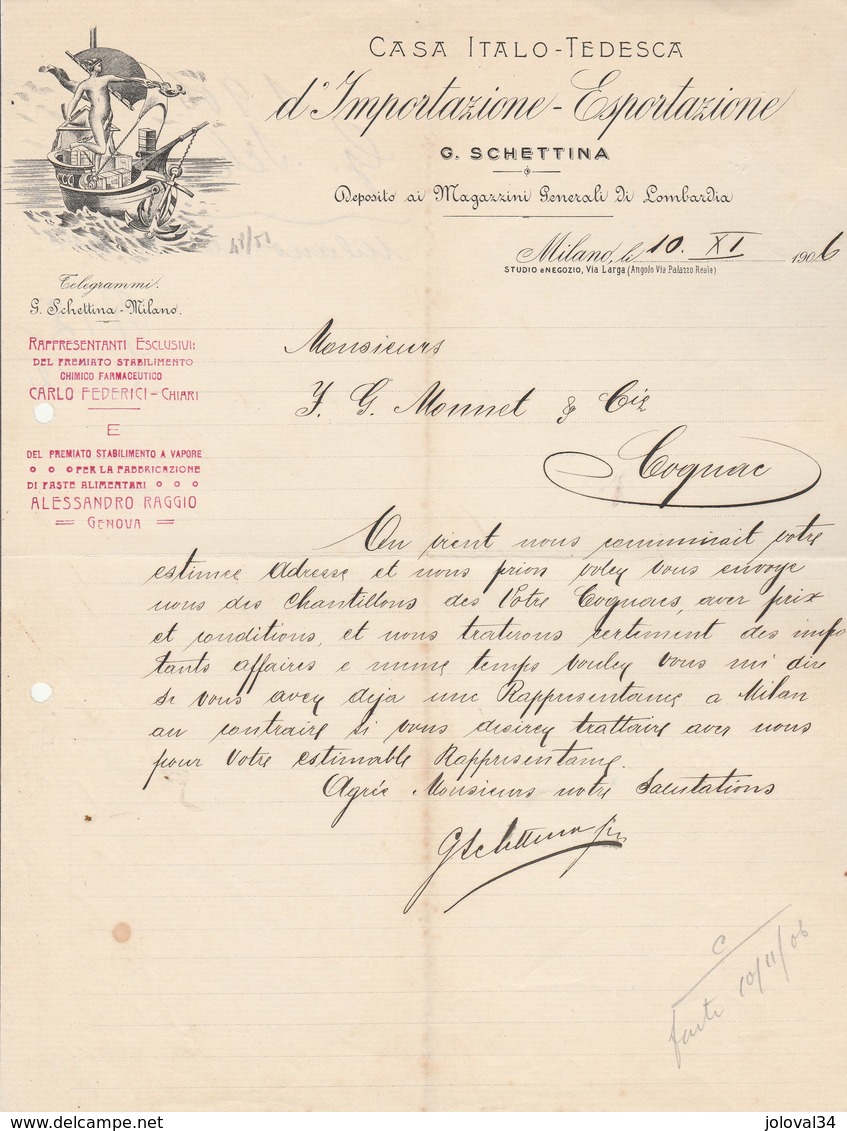 CASA ITALO-TEDESCA
d'Importazione-Esportazione
G. SCHETTINA
Deposito ai Magazzini Generali di Lombardia
Milano, li 10. XI 1906
STUDIO e NEGOZIO, Via Larga (Angolo Via Palazzo Reale)
Telegrammi:
G. Schettina-Milano.
RAPPRESENTANTI ESCLUSIVI:
DEL PREMIATO STABILIMENTO
CHIMICO FARMACEUTICO
CARLO FEDERICI-CHIARI
E
DEL PREMIATO STABILIMENTO A VAPORE
PER LA FABBRICAZIONE
DI PASTE ALIMENTARI
ALESSANDRO RAGGIO
GENOVA
Monsieurs
J. G. Monnet & Cie
Cognac
On vient nous communait votre
estimee Adresse et nous prion voley vous envoye
nous des Chantillons des Votre Cognacs, avec prix
et conditions, et nous traterons certement des impo
tants affaires e meme temps vouley vous mi dire
si vous avey deja une Rappresentame a Milan
au contraire si vous desirey trattaire avec nous
pour Votre estimable Rappresentame.
Agrée Monsieurs notre Salutations
GSchettina
C
10/11/06
joloval34